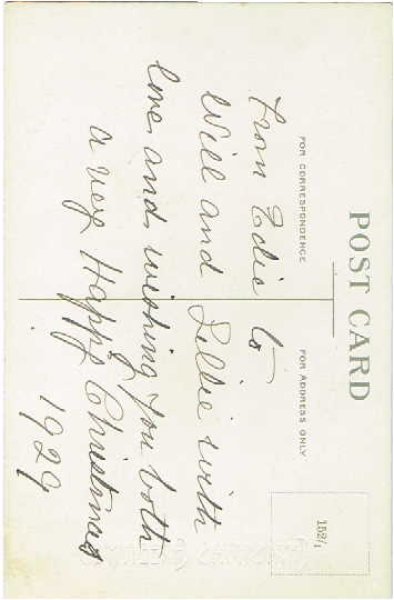 POST CARD
FOR CORRESPONDENCE
FOR ADDRESS ONLY
152/1
From Edie to
Will and Lillie with
love and wishing you both
a very Happy Christmas
1929